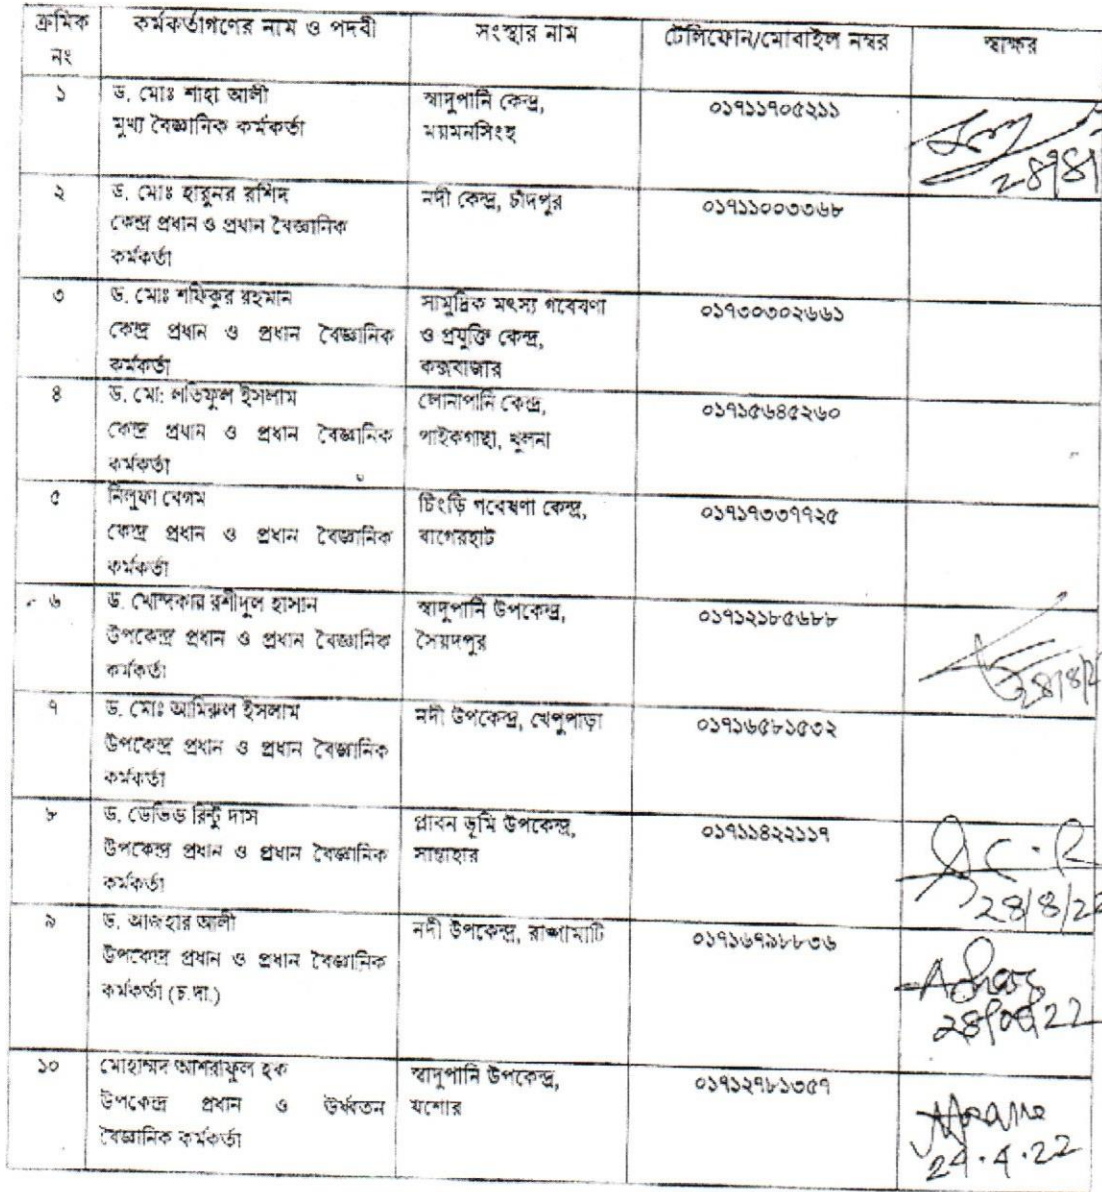 ক্রমিক নং
কর্মকর্তাগণের নাম ও পদবী
সংস্থার নাম
টেলিফোন/মোবাইল নম্বর
স্বাক্ষর
১
ড. মোঃ শাহা আলী
মুখ্য বৈজ্ঞানিক কর্মকর্তা
স্বাদুপানি কেন্দ্র,
ময়মনসিংহ
০১৭১১৭০৫২১১
২
ড. মোঃ হারুনর রশিদ
কেন্দ্র প্রধান ও প্রধান বৈজ্ঞানিক
কর্মকর্তা
নদী কেন্দ্র, চাঁদপুর
০১৭১১০০৩৩৬৮
৩
ড. মোঃ শফিকুর রহমান
কেন্দ্র প্রধান ও প্রধান বৈজ্ঞানিক
কর্মকর্তা
সামুদ্রিক মৎস্য গবেষণা
ও প্রযুক্তি কেন্দ্র,
কক্সবাজার
০১৭৩০৩০২৬৬১
৪
ড. মো: লতিফুল ইসলাম
কেন্দ্র প্রধান ও প্রধান বৈজ্ঞানিক
কর্মকর্তা
লোনাপানি কেন্দ্র,
পাইকগাছা, খুলনা
০১৭১৫৬৪৫২৬০
৫
নিলুফা বেগম
কেন্দ্র প্রধান ও প্রধান বৈজ্ঞানিক
কর্মকর্তা
চিংড়ি গবেষণা কেন্দ্র,
বাগেরহাট
০১৭১৭৩৩৭৭২৫
৬
ড. খোন্দকার রশীদুল হাসান
উপকেন্দ্র প্রধান ও প্রধান বৈজ্ঞানিক
কর্মকর্তা
স্বাদুপানি উপকেন্দ্র,
সৈয়দপুর
০১৭১২১৮৫৬৮৮
৭
ড. মোঃ আমিরুল ইসলাম
উপকেন্দ্র প্রধান ও প্রধান বৈজ্ঞানিক
কর্মকর্তা
নদী উপকেন্দ্র, খেপুপাড়া
০১৭১৬৫৮১৫৩২
৮
ড. ডেভিড রিন্টু দাস
উপকেন্দ্র প্রধান ও প্রধান বৈজ্ঞানিক
কর্মকর্তা
প্লাবন ভূমি উপকেন্দ্র,
সান্তাহার
০১৭১১৪২২১১৭
28/8/22
৯
ড. আজহার আলী
উপকেন্দ্র প্রধান ও প্রধান বৈজ্ঞানিক
কর্মকর্তা (চ.দা.)
নদী উপকেন্দ্র, রাঙ্গামাটি
০১৭১৬৭৯৮৮৩৬
১০
মোহাম্মদ আশরাফুল হক
উপকেন্দ্র প্রধান ও উর্ধ্বতন
বৈজ্ঞানিক কর্মকর্তা
স্বাদুপানি উপকেন্দ্র,
যশোর
০১৭১২৭৮১৩৫৭
24.4.22